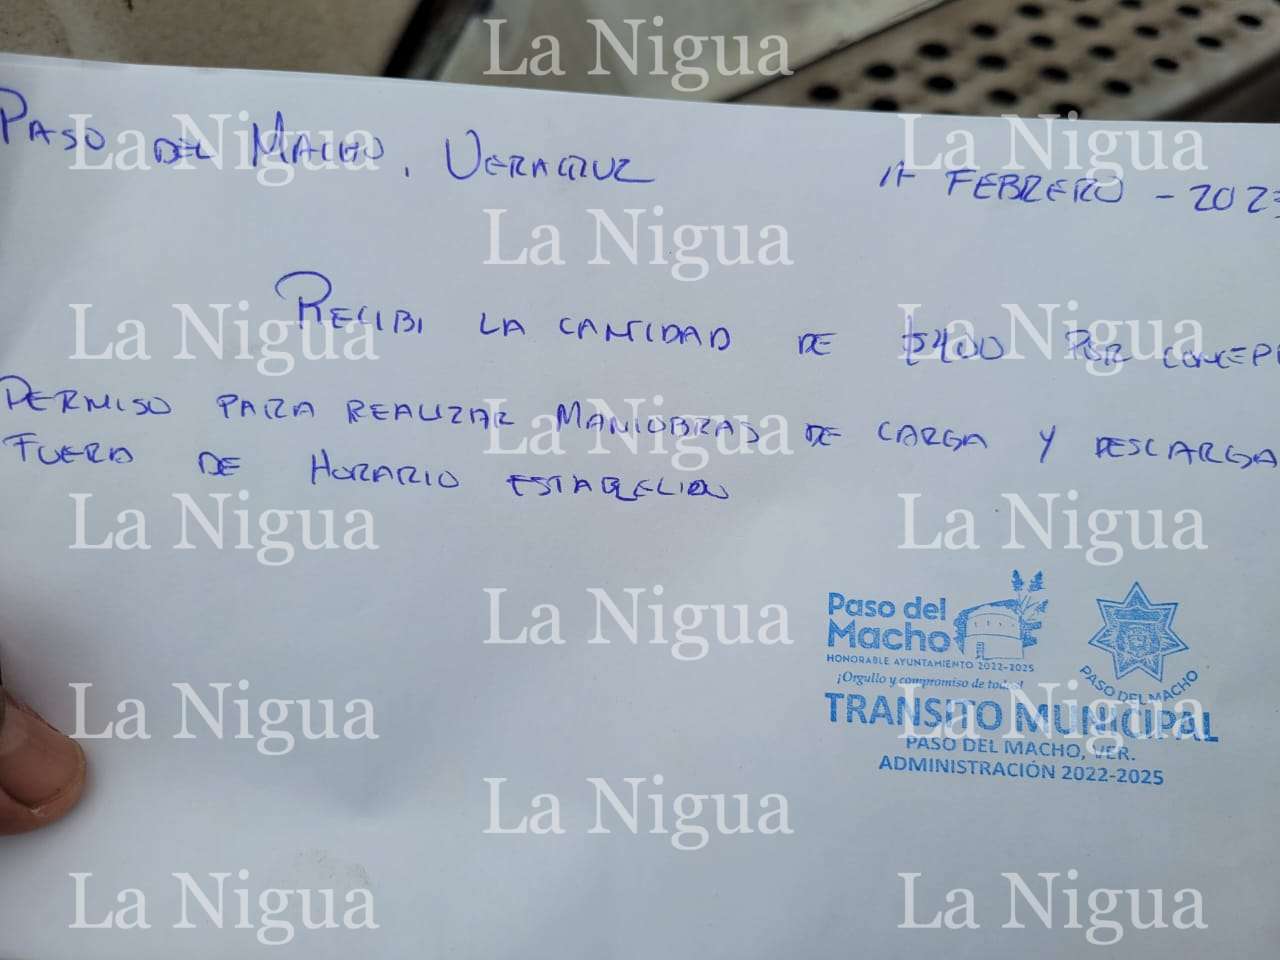 La Nigua
PASO DEL MACHO, VERACRUZ
FEBRERO - 202
La Nigua La Nigua
La Nigua
RECIBI LA CANTIDAD DE $400 POR CONCEP
La Nigua La Nigua
PERMISO PARA REALIZAR MANIOBRAS DE CARGA Y DESCARGA
La Nigua
FUERA DE HORARIO ESTABLECIDO
La Nigua La Nigua
La Nigua
Paso del
Macho
HONORABLE AYUNTAMIENTO 2022-2025
¡Orgullo y compromiso de todos!
PASO DEL MACHO
TRANSITO MUNICIPAL
PASO DEL MACHO, VER.
ADMINISTRACIÓN 2022-2025
La Nigua La Nigua
La Nigua
La Nigua La Nigua